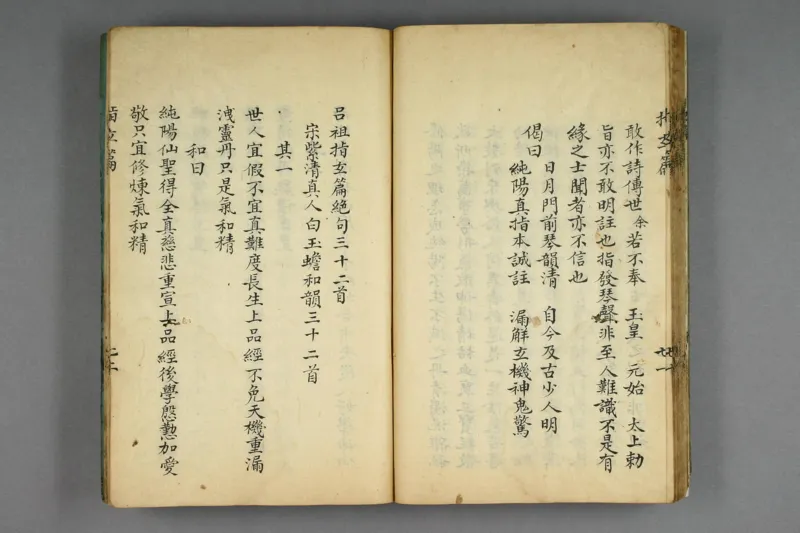 指玄篇
敢作詩傳世余若不奉 玉皇 元始 太上勅
旨亦不敢明註也指發琴聲非至人難識不是有
緣之士聞者亦不信也
偈曰 日月門前琴韻清 自今及古少人明
純陽真指本誠註 漏解玄機神鬼驚
呂祖指玄篇絕句三十二首
宋紫清真人白玉蟾和韻三十二首
其一
世人宜假不宜真難度長生上品經不免天機重漏
洩靈丹只是氣和精
和曰
純陽仙聖得全真慈悲重宣上品經後學慇懃加愛
敬只宜修煉氣和精
指玄篇